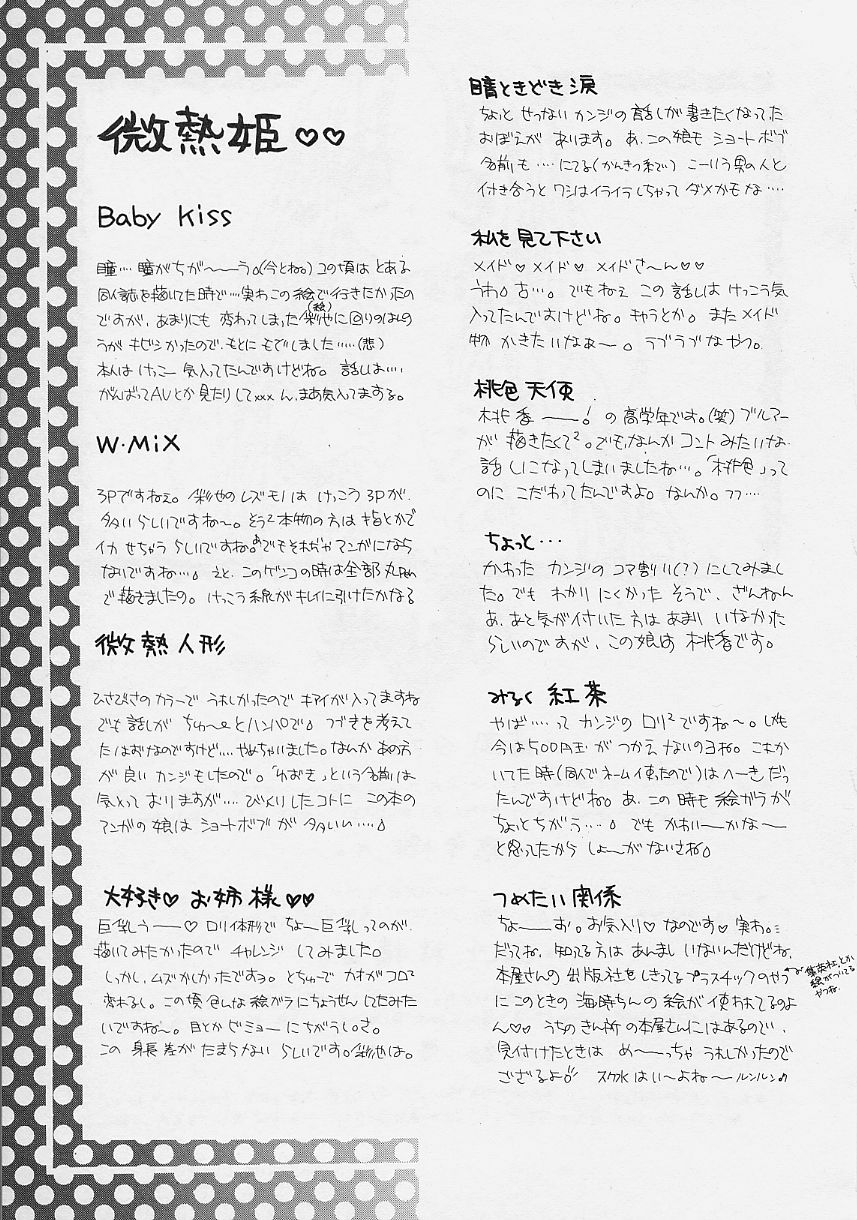 微熱姫♡♡
Baby Kiss
瞳…瞳がちが〜〜う。(今とね。)コの頃は とある
同人誌を描いてた時で…実わこの絵で行きたかったの
ですが、あまりにも 変わってしまった
うがキビシかったので、もとにもでしました……(悲)
本人は けっこー 気入ってたんですけどね。話しは…
がんばってAVとか見たりしてxxx ん、まあ気入ってまする。
W・MiX
3Pですねぇ。彩也のレズモノは けっこう3Pが、
多いらしいですね〜。どうも本物の方は指とかで
イカせちゃうらしいですね。でもそれぢゃマンガになら
ないですね…。えと、このゲンコの時は全部丸Pen
で描きましたの。けっこう線がキレイに引けたかなる
微熱人形
ひさびさのカラーで うれしかったので キアイが入ってますね
でも話しが ちゅ〜とハンパで。つづきを考えて
たはずなのですけど…やめちゃいました。なんか あの方
が良いカンジもしたので。「ゆずき」という名前は
気入っておりますが…びっくりしたコトに この本の
マンガの娘は ショートボブが 多いい…。
大好き♡ お姉様♡♡
巨乳しう——♡ ロリ体形で ちょー巨乳ってのが、
描いてみたかったので チャレンジ してみました。
しかし、ムズかしかったですヨ。とちゅーで カオがコロコロ
変わるし。この頃 色んな絵ガラにちょうせん してたみた
いですね〜。目とか ビミョーに ちがうしさ。
この 身長差が たまらない らしいです。彩也は。
晴ときどき涙
ちょっと せつない カンジの 話しが 書きたくなってた
おぼえが あります。あ、この娘も ショートボブ
名前も…にてる(かんきつ系で) こーいう男の人と
付き合うと ワシはイライラしちゃって ダメかもな…
私を見て下さい
メイド♡ メイド♡ メイドさ〜ん♡♡
うわ。古…。でもねぇ この話しは けっこう気
入ってたんですけどね。キャラとか。また メイド
物 かきたいなぁ〜。ラブラブな やつ。
桃色天使
桃香——! の 高学年です。(笑) ブルマー
が 描きたくて。でもなんか コント みたいな
話しになってしまいましたね…。「桃色」って
のに こだわってたんですよ。なんか。フフ…
ちょっと…
かわった カンジの コマ割り(?)にしてみまし
た。でも わかりにくかった そうで、ざんねん
あ、あと気が付いた方は あまり いなかった
らしいのですが、この娘は 桃香です。
みるく紅茶
やば…って カンジの ロリ²ですね〜。しかも
今は500円玉が つかえないのヨね。これか
いてた時(同人でネーム使ったので)は へーきだっ
たんですけどね。あ、この時も 絵ガラが
ちょっとちがう…。でも かわいーかな〜
と思ってたから しょ〜がないさね。
つめたい関係
ちょ——お。お気入り♡なのです♡実わ。…
だってね、知ってる方は あんまし いないんだけどね、
本屋さんの 出版社をしきってるプラスチックのやつ
集英社。とか
絵がついてる
やつね
にこのときの 海時ちんの 絵が 使われてるのよ
ん♡♡ うちのきん所の本屋さんにはあるので、
見付けたときは め〜〜っちゃ うれしかったので
ござるよ。 スク水はい〜よね〜 ルンルン♪